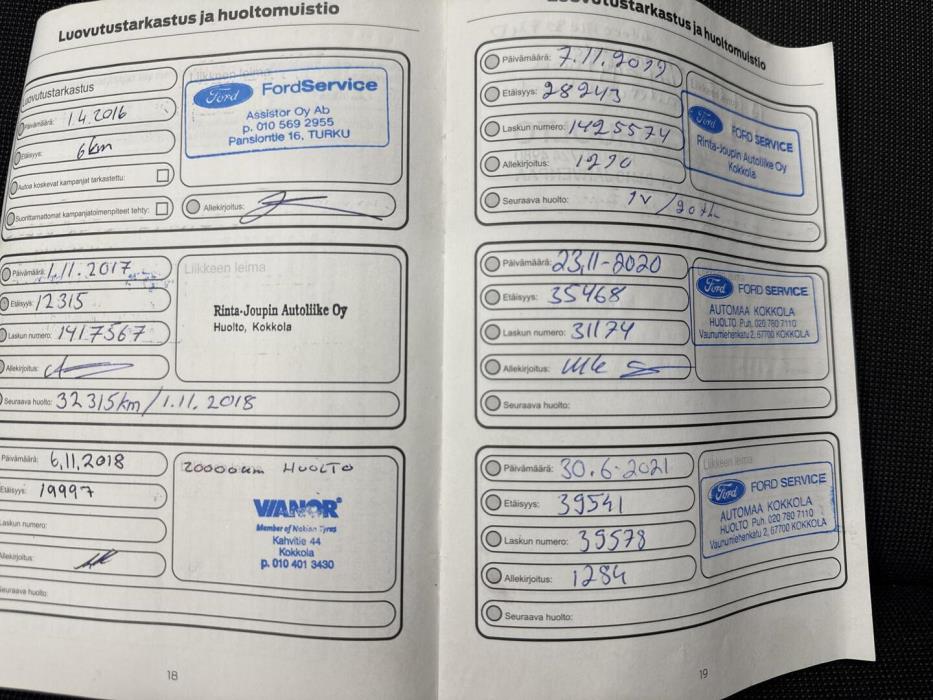 Luovutustarkastus ja huoltomuistio
Luovutustarkastus
Päivämäärä: 1.4.2016
Etäisyys: 6km
Autoa koskevat kampanjat tarkastettu:
Suorittamattomat kampanjatoimenpiteet tehty:
Liikkeen leima
Ford FordService
Assistor Oy Ab
p. 010 569 2955
Pansiontie 16, TURKU
Allekirjoitus:
Päivämäärä: 1.11.2017
Etäisyys: 12315
Laskun numero: 1417567
Allekirjoitus:
Seuraava huolto: 32315km/1.11.2018
Liikkeen leima
Rinta-Joupin Autoliike Oy
Huolto, Kokkola
Päivämäärä: 6,11,2018
Etäisyys: 19997
Laskun numero:
Allekirjoitus:
Seuraava huolto:
20000km HUOLTO
VIANOR
Member of Nokian Tyres
Kahvitie 44
Kokkola
p. 010 401 3430
18
Luovutustarkastus ja huoltomuistio
Päivämäärä: 7.11.2019
Etäisyys: 28243
Laskun numero: 1425574
Allekirjoitus: 1290
Seuraava huolto: 1v/20th
Liikkeen leima
Ford FORD SERVICE
Rinta-Joupin Autoliike Oy
Kokkola
Päivämäärä: 23,11-2020
Etäisyys: 35468
Laskun numero: 31174
Allekirjoitus:
Seuraava huolto:
Ford FORD SERVICE
AUTOMAA KOKKOLA
HUOLTO Puh. 020 780 7110
Vaunumiehenkatu 2, 67700 KOKKOLA
Päivämäärä: 30.6-2021
Etäisyys: 39541
Laskun numero: 39578
Allekirjoitus: 1284
Seuraava huolto:
Liikkeen leima
Ford FORD SERVICE
AUTOMAA KOKKOLA
HUOLTO Puh. 020 780 7110
Vaunumiehenkatu 2, 67700 KOKKOLA
19